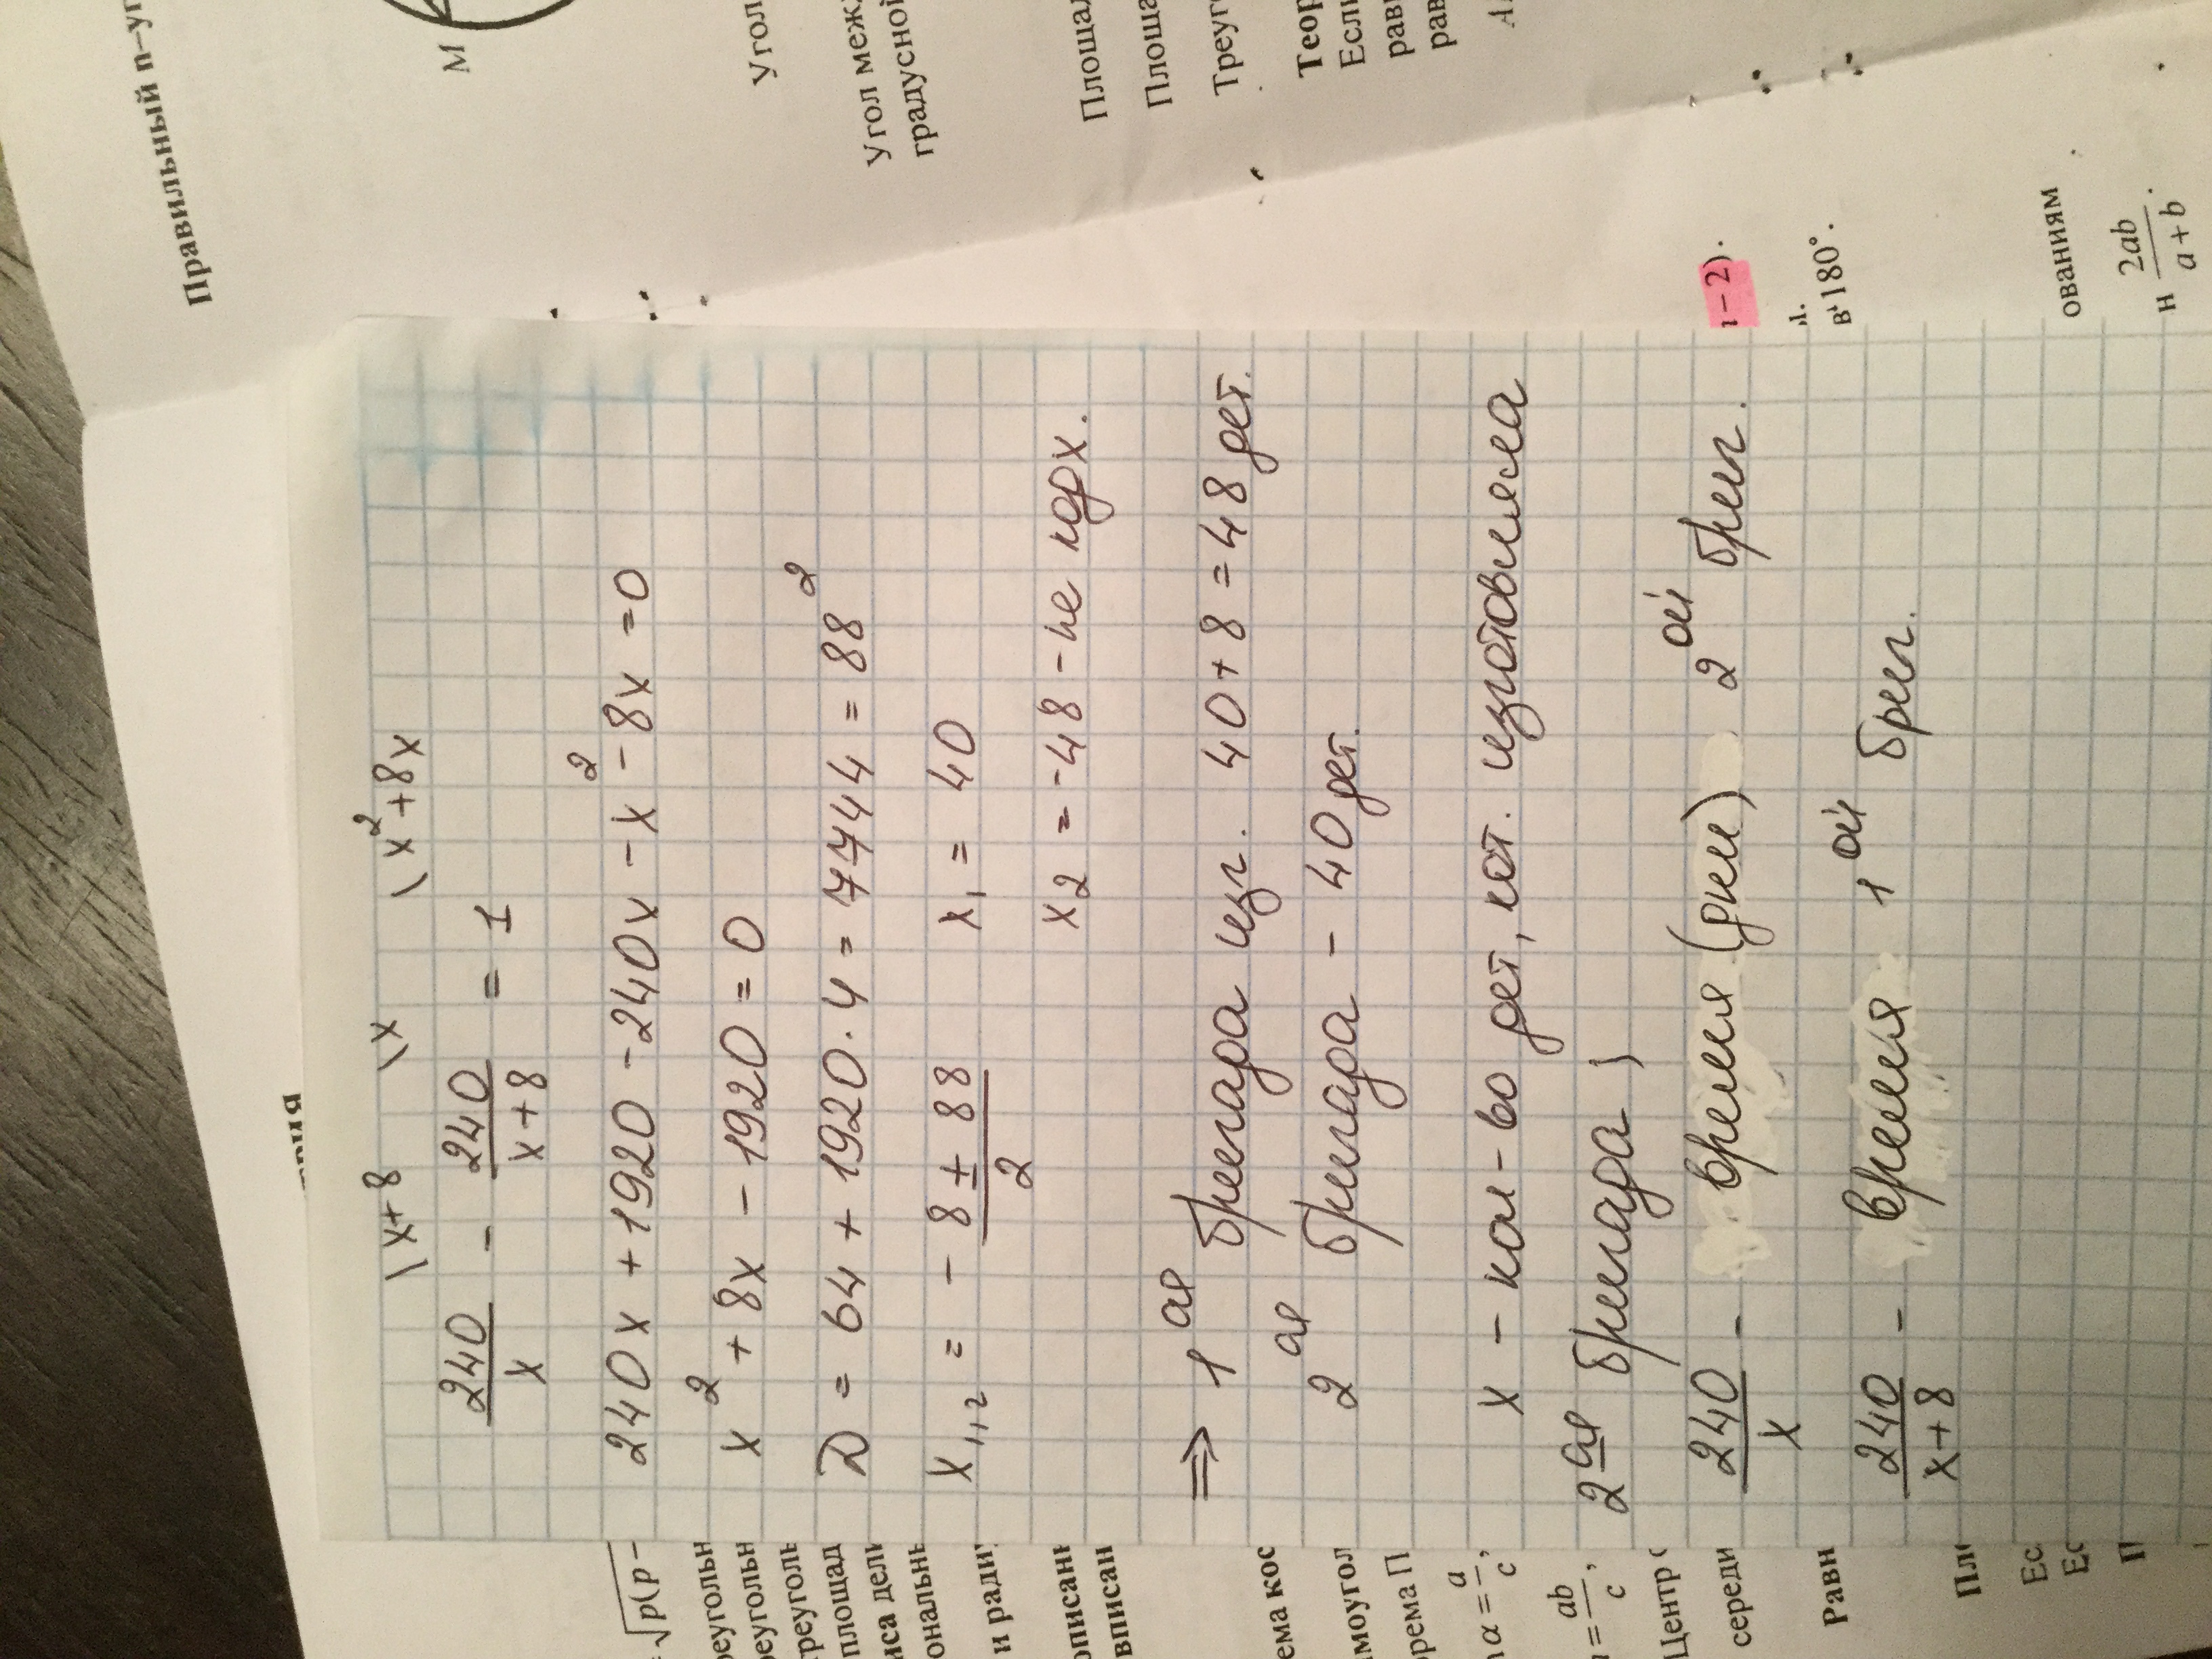 \ x+8 \ x \ x²+8x
240/x - 240/x+8 = 1
240x + 1920 - 240x - x² - 8x = 0
x² + 8x - 1920 = 0
D = 64 + 1920 · 4 = 7744 = 88²
x1,2 = - 8 ± 88 / 2 x1 = 40
x2 = -48 - не подх.
⇒ 1ая бригада изг. 40+8 = 48 дет.
2ая бригада - 40 дет.
x - кол-во дет, кот. изготовила
2ая бригада )
240/x - время (дни) 2ой бриг.
240/x+8 - время 1ой бриг.
Правильный n-уг
M
Угол
Угол меж
градусной
Площад
Площа
Треуг
Теор
Если
рави
рав
- 2).
в 180°.
ованиям
н 2ab/a + b.
√p(p -
реугольн
реуголь
площад
иса дели
ональн
и ради
описанн
вписан
ема кос
моугол
орема П
α = a/c,
= ab/c,
Центр
середи
Равн
Пл
Ес
Ес